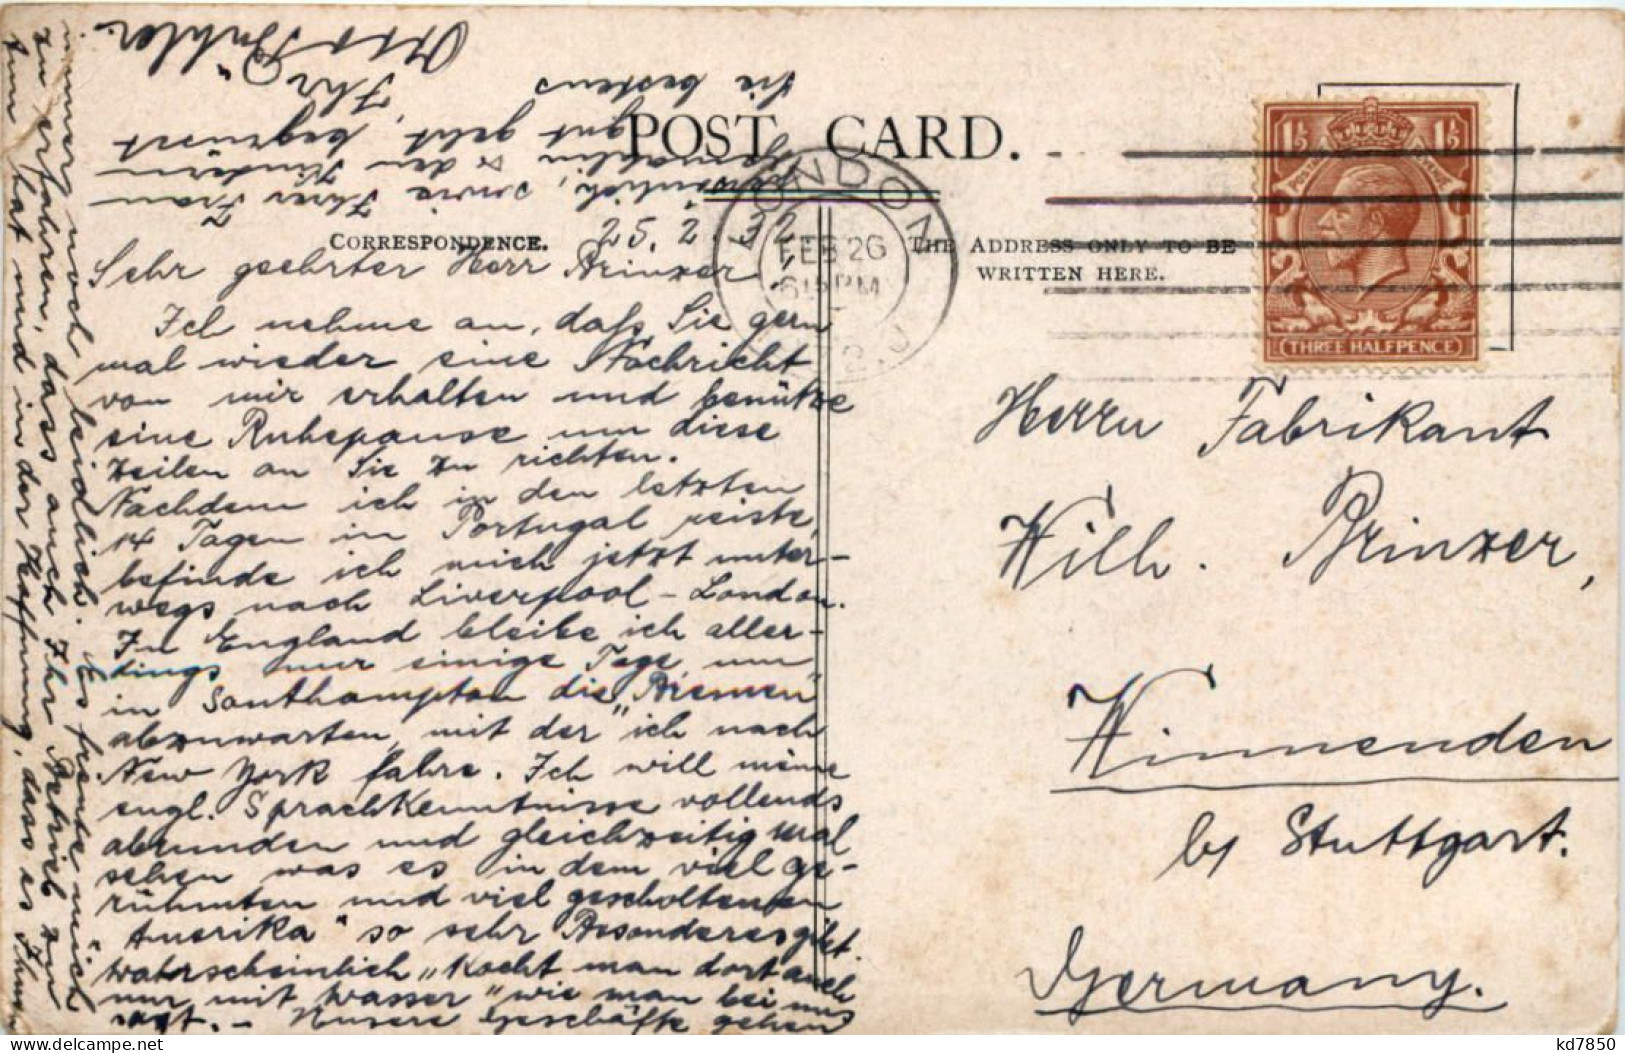 POST CARD.
CORRESPONDENCE.
THE ADDRESS ONLY TO BE
WRITTEN HERE.
LONDON
FEB 26
6 15 PM
THREE HALFPENCE
1½ 1½
25. 2. 32
Sehr geehrter Herr Prinzer!
Ich nehme an, daß Sie gern
mal wieder eine Nachricht
von mir erhalten und benütze
eine Ruhepause um diese
Zeilen an Sie zu richten.
Nachdem ich in den letzten
14 Tagen in Portugal reiste,
befinde ich mich jetzt unter-
wegs nach Liverpool - London.
In England bleibe ich aller-
dings nur einige Tage, um
in Southampton die „Bremen"
abzuwarten, mit der ich nach
New York fahre. Ich will meine
engl. Sprachkenntnisse vollends
abrunden und gleichzeitig mal
sehen was es in dem viel ge-
rühmten und viel gescholtenen
Amerika" so sehr Besonderes gibt.
Wahrscheinlich „kocht man dort auch
nur mit Wasser" wie man bei uns
sagt. - Unsere Geschäfte gehen
immer noch leidlich. Es freute mich
zu erfahren, dass auch Ihr Betrieb zu
tun hat und in der Hoffnung, dass es Ihnen
persönlich, sowie Ihrer Frau
Gemahlin & den Kindern
gut geht, begrüsst
Sie bestens
Ihr
Otto
Herrn Fabrikant
Wilh. Prinzer,
Winnenden
b/ Stuttgart.
Germany.
kd7850